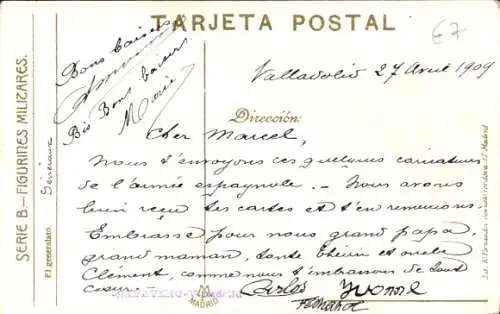 TARJETA POSTAL
€7
Valladolid 27 Avril 1909
Dirección:
Bons baisers
Bis Bons baisers
Marie
Cher Marcel,
Nous t'envoyons ces quelques caricatures
de l'armée espagnole. - Nous avons
bien reçu tes cartes et t'en remercions.
Embrasse pour nous grand papa,
grand maman, tante et oncle
Clément, comme nous t'embrassons de tout
coeur.
Carlos Yvonne
SERIE B.—FIGURINES MILITARES.
El generalato. Généraux
MADRID